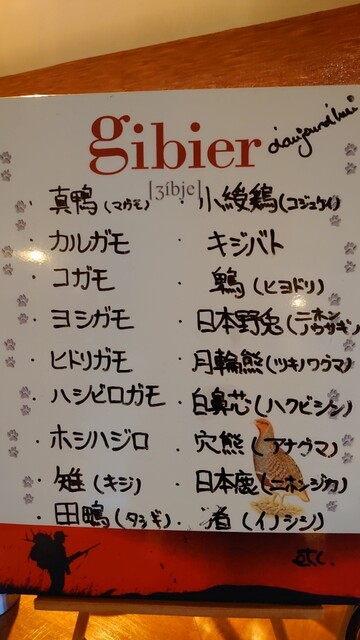 gibier
d'aujourd'hui
[ʒíbje]
・真鴨(マガモ)
・カルガモ
・コガモ
・ヨシガモ
・ヒドリガモ
・ハシビロガモ
・ホシハジロ
・雉(キジ)
・田鴫(タシギ)
・小綬鶏(コジュケイ)
・キジバト
・鵯(ヒヨドリ)
・日本野兎(ニホンノウサギ)
・月輪熊(ツキノワグマ)
・白鼻芯(ハクビシン)
・穴熊(アナグマ)
・日本鹿(ニホンジカ)
・猪(イノシシ)
etc.